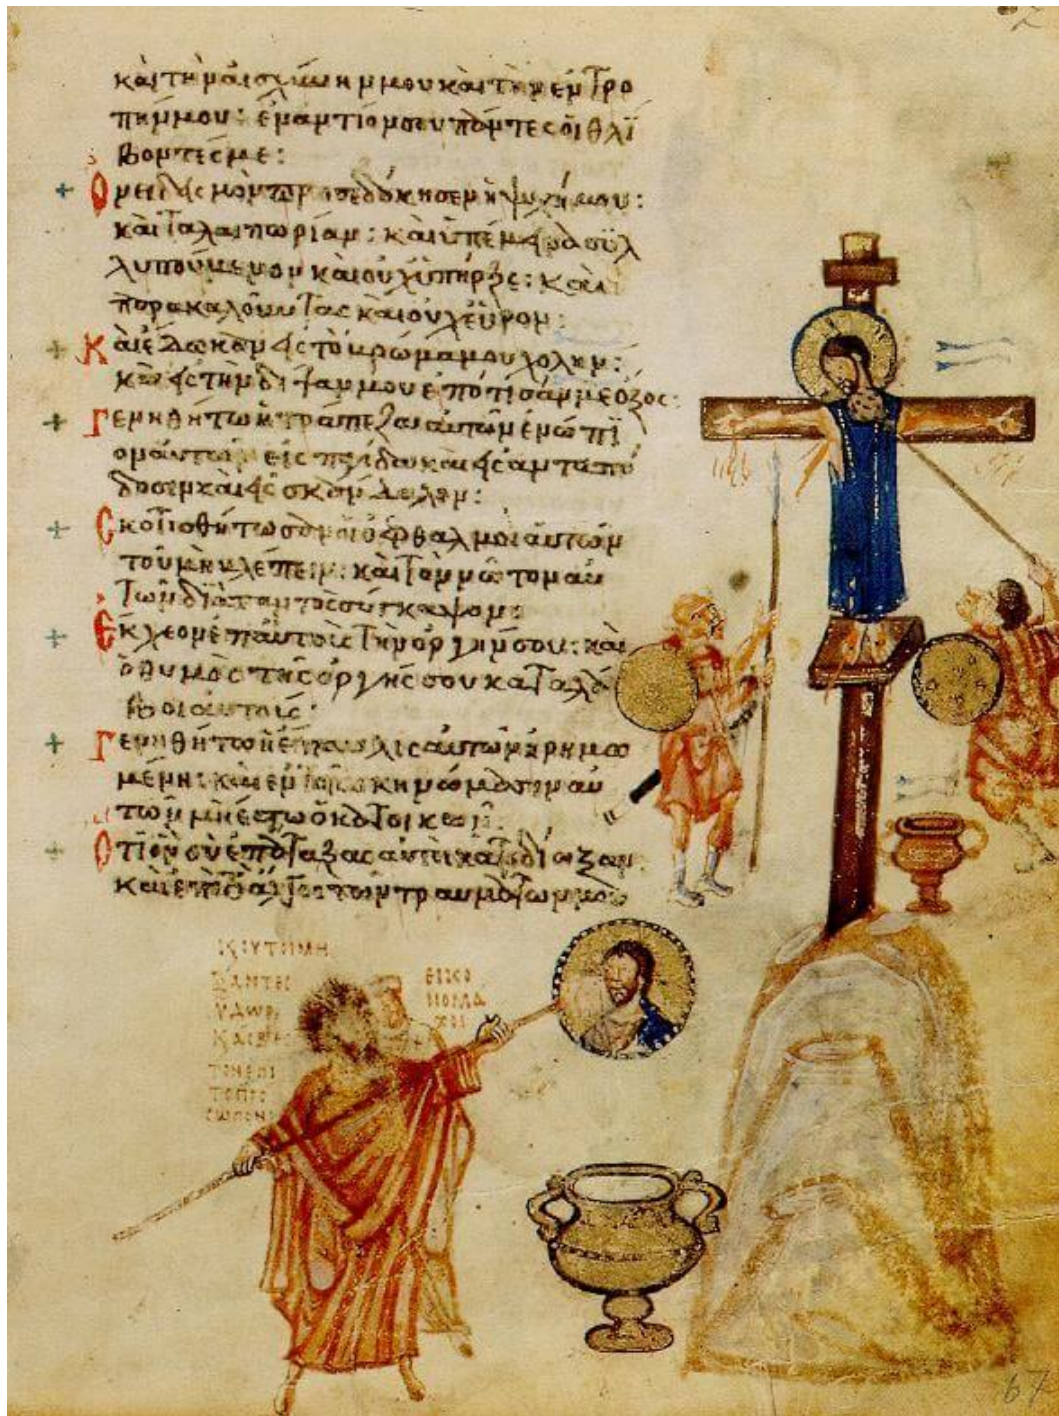 καὶ τὴν αἰσχύνην μου καὶ τὴν ἐντρο
πήν μου: ἐναντίον σου πάντες οἱ θλί
βοντές με:
Ὀνειδισμὸν προσεδόκησεν ἡ ψυχή μου:
καὶ ταλαιπωρίαν: καὶ ὑπέμεινα συλ
λυπούμενον καὶ οὐχ ὑπῆρξε: καὶ
παρακαλοῦντας καὶ οὐχ εὗρον:
Καὶ ἔδωκαν εἰς τὸ βρῶμά μου χολήν:
καὶ εἰς τὴν δίψαν μου ἐπότισάν με ὄξος:
Γενηθήτω ἡ τράπεζα αὐτῶν ἐνώπι
ον αὐτῶν εἰς παγίδα καὶ εἰς ἀνταπό
δοσιν καὶ εἰς σκάνδαλον:
Σκοτισθήτωσαν οἱ ὀφθαλμοὶ αὐτῶν
τοῦ μὴ βλέπειν: καὶ τὸν νῶτον αὐ
τῶν διὰ παντὸς σύγκαμψον:
Ἔκχεον ἐπ' αὐτοὺς τὴν ὀργήν σου: καὶ
ὁ θυμὸς τῆς ὀργῆς σου καταλά
βοι αὐτούς:
Γενηθήτω ἡ ἔπαυλις αὐτῶν ἠρημω
μένη: καὶ ἐν τοῖς σκηνώμασιν αὐ
τῶν μὴ ἔστω ὁ κατοικῶν:
Ὅτι ὃν σὺ ἐπάταξας αὐτοὶ κατεδίωξαν
καὶ ἐπὶ τὸ ἄλγος τῶν τραυμάτων μου
ΕΙΚΟ
ΝΟΜΑ
ΧΟΙ
ΥΔΩΡ
ΤΟΝ ΕΠΙ
ΤΟ ΠΡΟ
ΣΩΠΟΝ
67